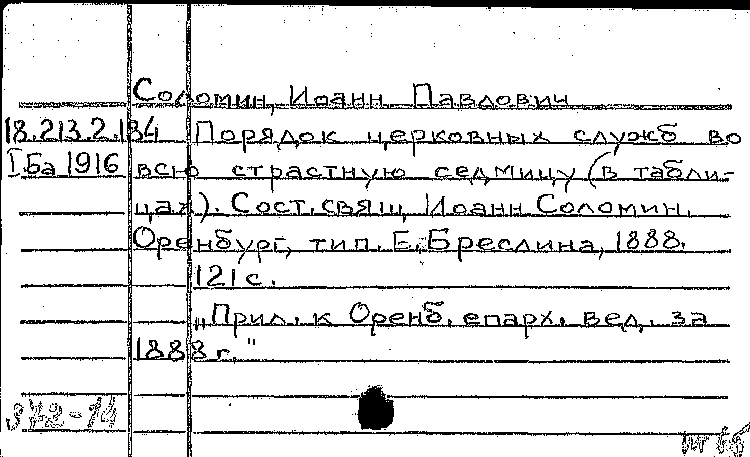 Соломин, Иоанн Павлович
18.213.2.184 Порядок церковных служб во
I.Ба 1916 всю страстную седмицу (в табли-
цах). Сост. свящ. Иоанн Соломин.
Оренбург, тип. Е. Бреслина, 1888.
121 с.
„Прил. к Оренб. епарх. вед. за
1888 г."
372-14